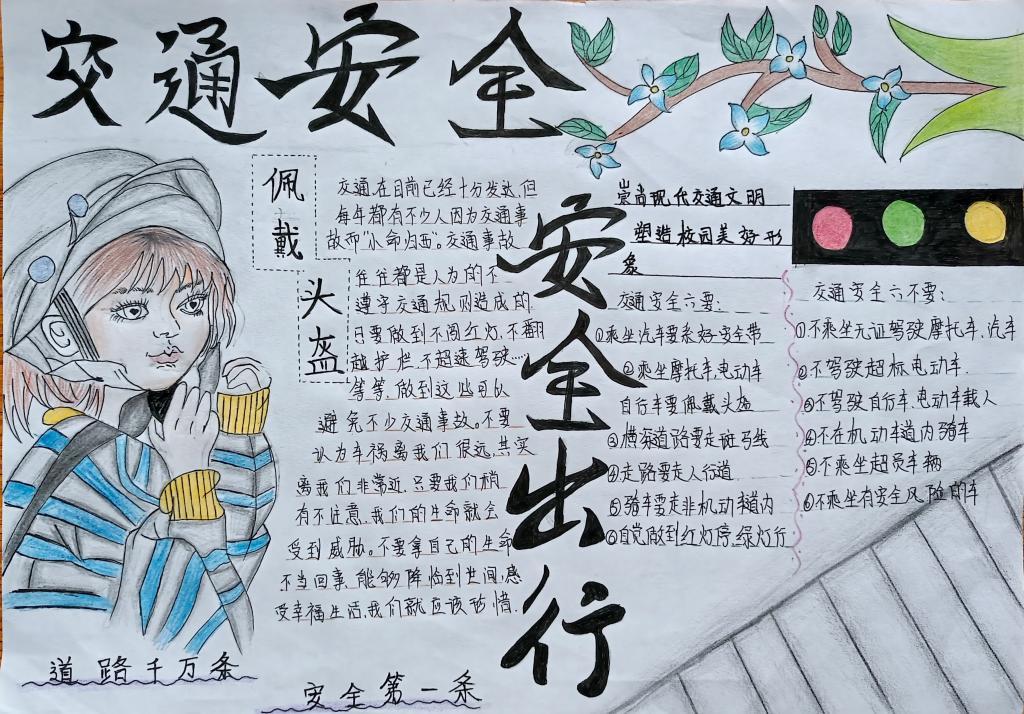 交通安全
佩戴
头盔
交通,在目前已经十分发达,但
每年都有不少人因为交通事
故而"小命归西"。交通事故
往往都是人为的不
遵守交通规则造成的
只要做到不闯红灯,不翻
越护栏,不超速驾驶……
等等,做到这些可以
避免不少交通事故。不要
认为车祸离我们很远,其实
离我们非常近,只要我们稍
有不注意,我们的生命就会
受到威胁。不要拿自己的生命
不当回事,能够降临到世间,感
受幸福生活,我们就应该珍惜.
道路千万条
安全第一条
安全出行
崇尚现代交通文明
塑造校园美好形
象
交通安全六要:
①乘坐汽车要系好安全带
②乘坐摩托车,电动车
自行车要佩戴头盔
③横穿道路要走斑马线
④走路要走人行道
⑤骑车要走非机动车道内
⑥自觉做到红灯停,绿灯行
交通安全六不要:
①不乘坐无证驾驶摩托车,汽车
②不驾驶超标电动车.
③不驾驶自行车、电动车载人
④不在机动车道内骑车
⑤不乘坐超员车辆
⑥不乘坐有安全风险的车